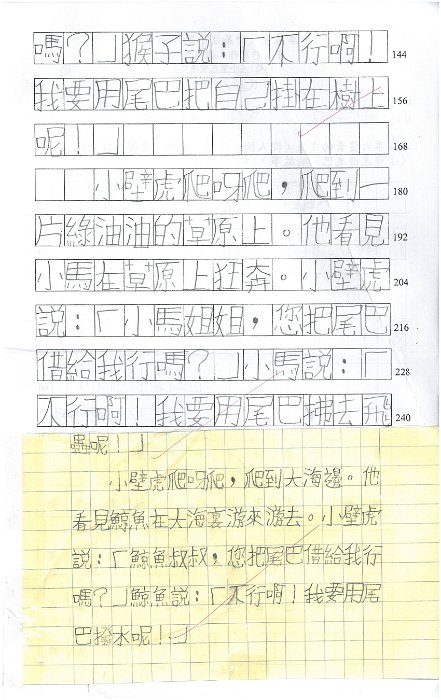 嗎？」猴子説：「不行啊！ 144
我要用尾巴把自己掛在樹上 156
呢！」 168
小壁虎爬呀爬，爬到一 180
片綠油油的草原上。他看見 192
小馬在草原上狂奔。小壁虎 204
説：「小馬姐姐，您把尾巴 216
借給我行嗎？」小馬説：「 228
不行啊！我要用尾巴拂去飛 240
蟲呢！」
小壁虎爬呀爬，爬到大海邊。他
看見鯨魚在大海裏游來游去。小壁虎
説：「鯨魚叔叔，您把尾巴借給我行
嗎？」鯨魚説：「不行啊！我要用尾
巴撥水呢！」